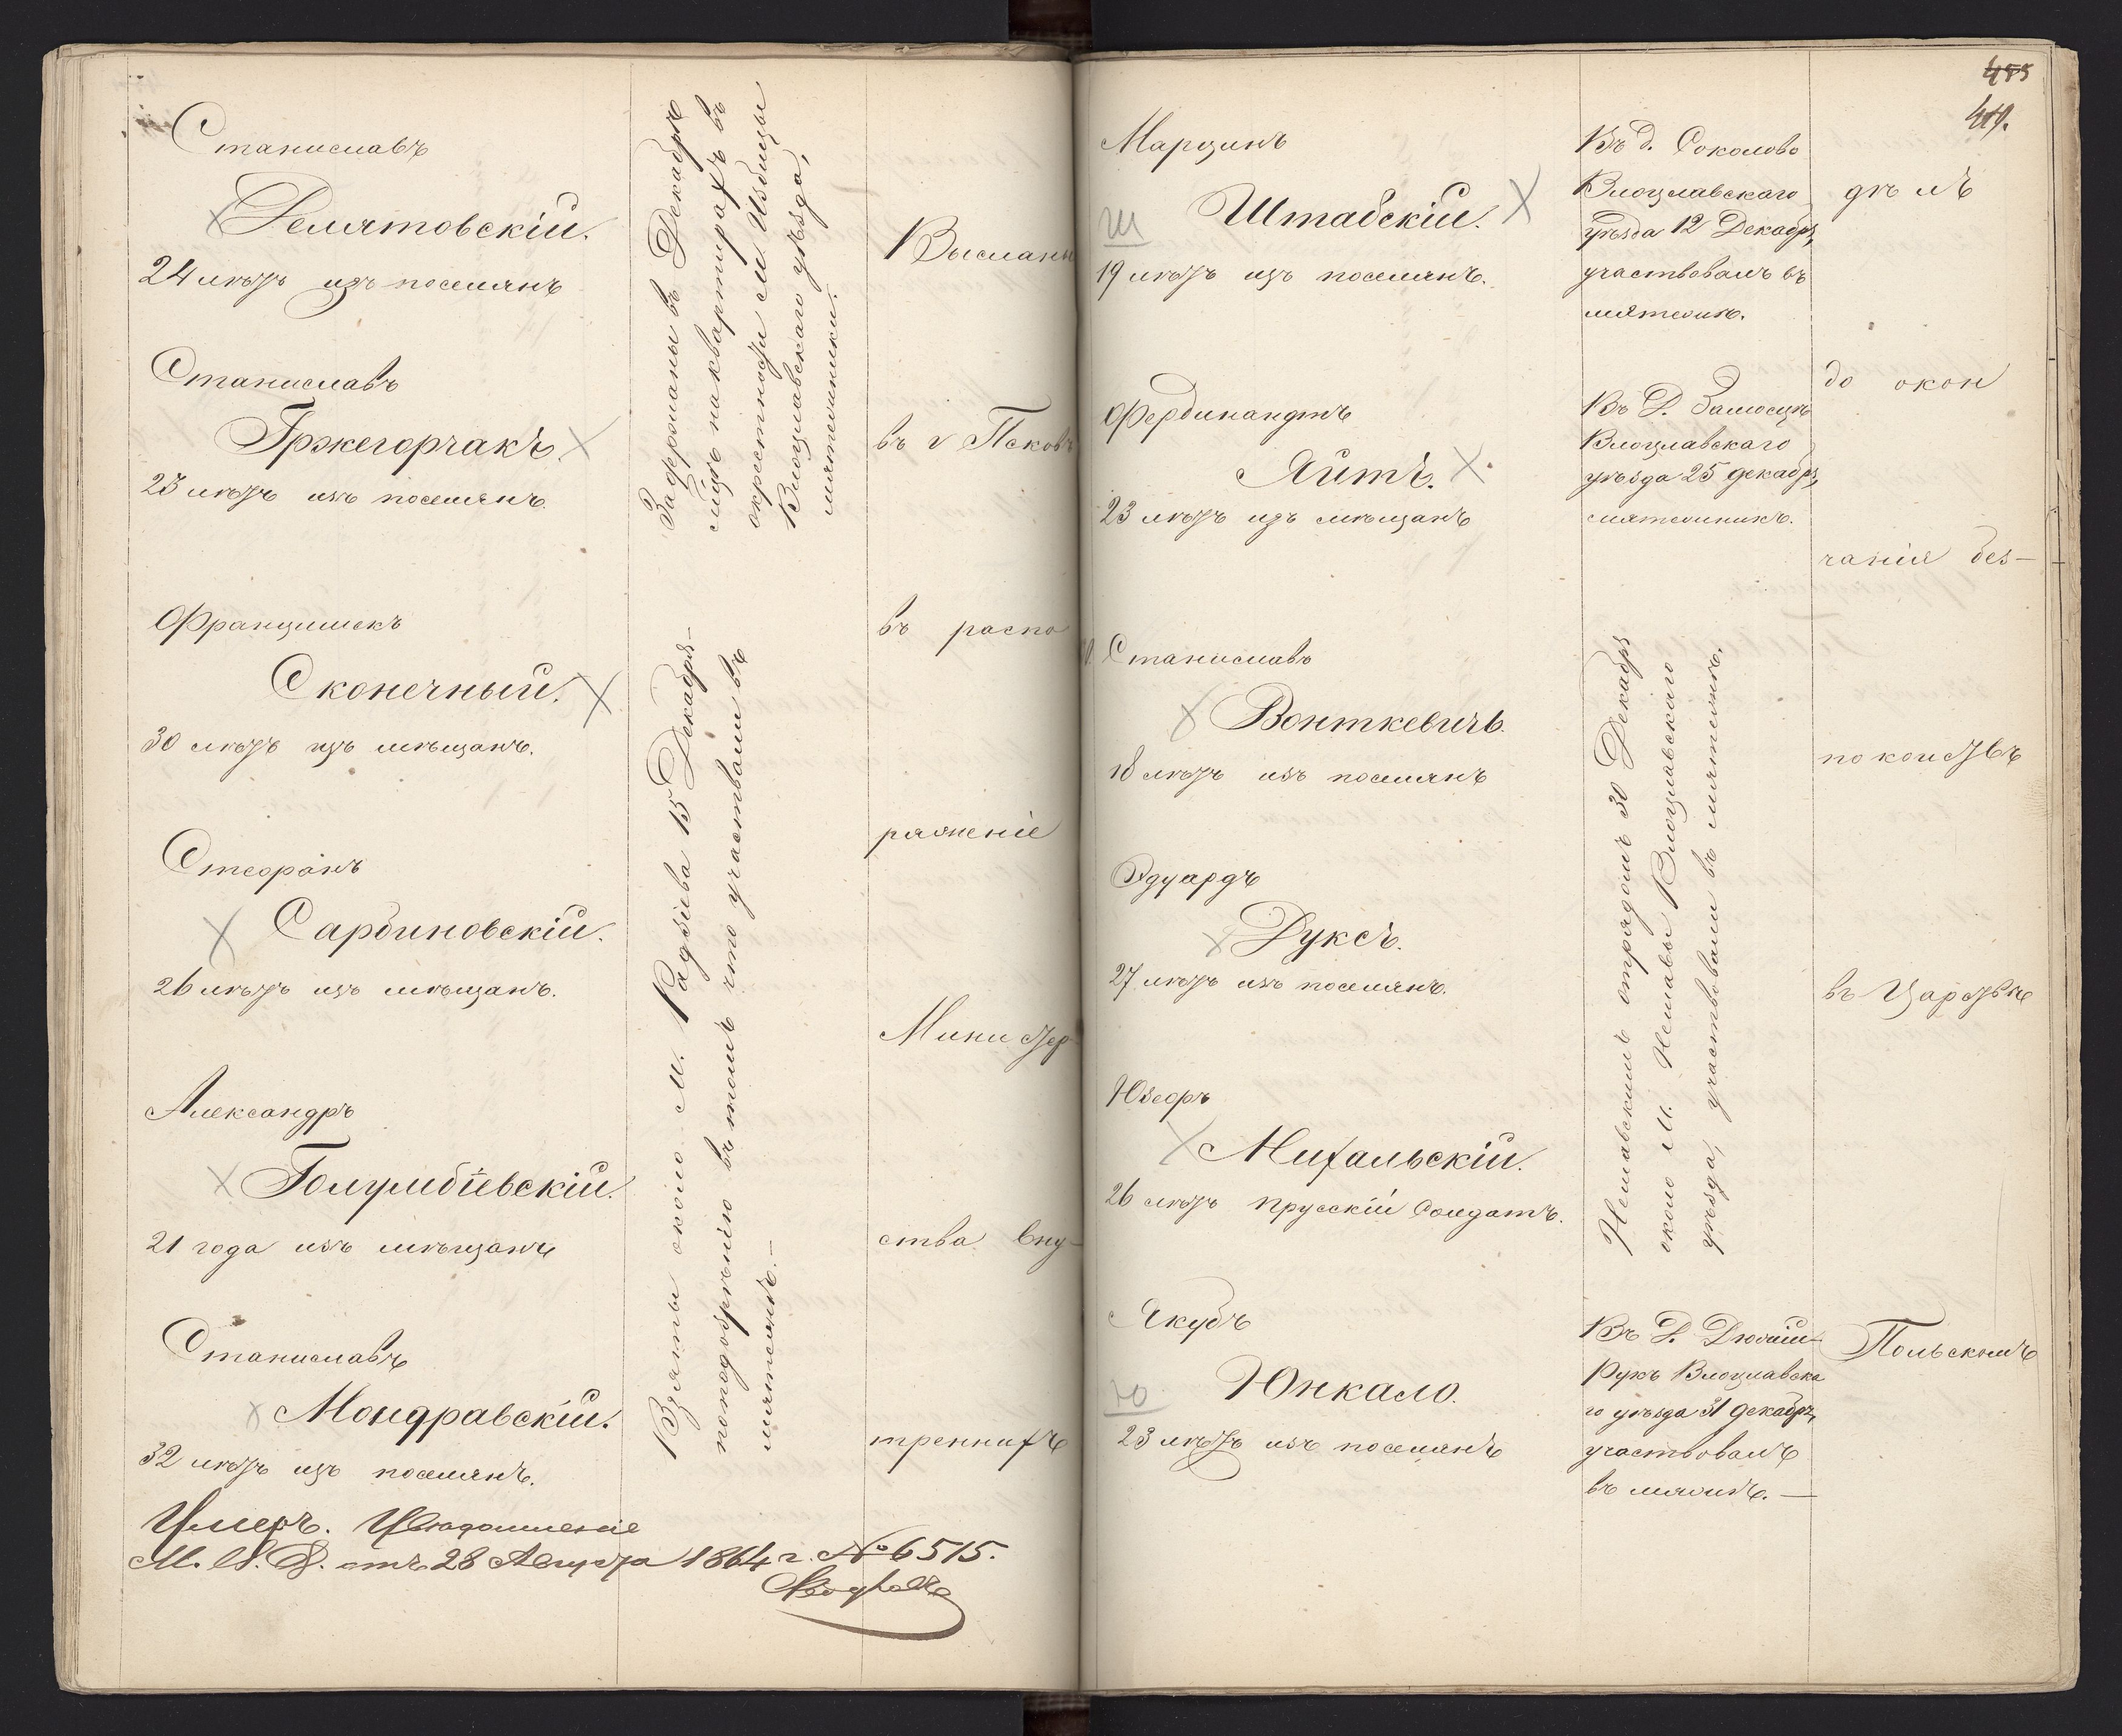 Станиславъ
Релятовскій.
24 лѣтъ изъ поселянъ
Станиславъ
Гржегорчакъ.
23 лѣтъ изъ поселянъ.
Францишекъ
Сконечный.
30 лѣтъ изъ мѣщанъ.
Стефанъ
Сарбиновскій.
26 лѣтъ изъ мѣщанъ.
Александръ
Голумбіевскій.
21 года изъ мѣщанъ
Станиславъ
Мондравскій.
32 лѣтъ изъ поселянъ.
Умеръ. Увѣдомленіе
М. В. Д. отъ 28 Августа 1864 г. № 6515.
Задержаны въ Декабрѣ
мѣс. на квартирахъ въ
окрестности м. Избицы
Влоцлавскаго уѣзда,
мятежники.
Взяты около м. Радзіева 15 Декабря
по подозрѣнію въ томъ что участвовали въ
мятежѣ.—
Высланы
въ г Псковъ
въ распо
ряженіе
Министер-
ства Вну-
треннихъ
455
419.
Марцинъ
Ш
Штабскій.
19 лѣтъ изъ поселянъ.
Фердинандтъ
Яйтъ.
23 лѣтъ изъ мѣщанъ
Станиславъ
Вонткевичъ.
18 лѣтъ изъ поселянъ
Эдуардъ
Дуксъ.
27 лѣтъ изъ поселянъ.
Юзефъ
Михальскій.
26 лѣтъ прусскій солдатъ.
Якубъ
Ю
Юнкало.
23 лѣтъ изъ поселянъ
Въ д. Соколово
Влоцлавскаго
уѣзда 12 Декабря,
участвовалъ въ
мятежѣ.
Въ Д.
Влоцлавскаго
уѣзда 25 декабря,
мятежникъ.
Нешавскимъ отрядомъ 30 Декабря
около м. Нешавы Влоцлавскаго
уѣзда, участвовали въ мятежѣ.
Въ Д.
Влоцлавска
го уѣзда 31 декабря,
участвовалъ
въ мятежѣ.—
дѣлъ
до окон
чанія без-
покойствъ
въ Царствѣ
Польскомъ